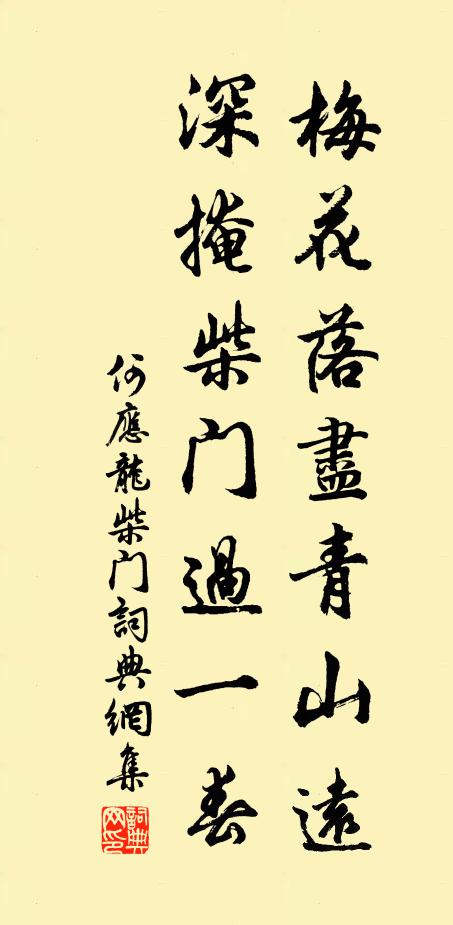 梅花落盡青山遠
深掩柴门過一春
何應龍柴门詞典網集
詞典網印